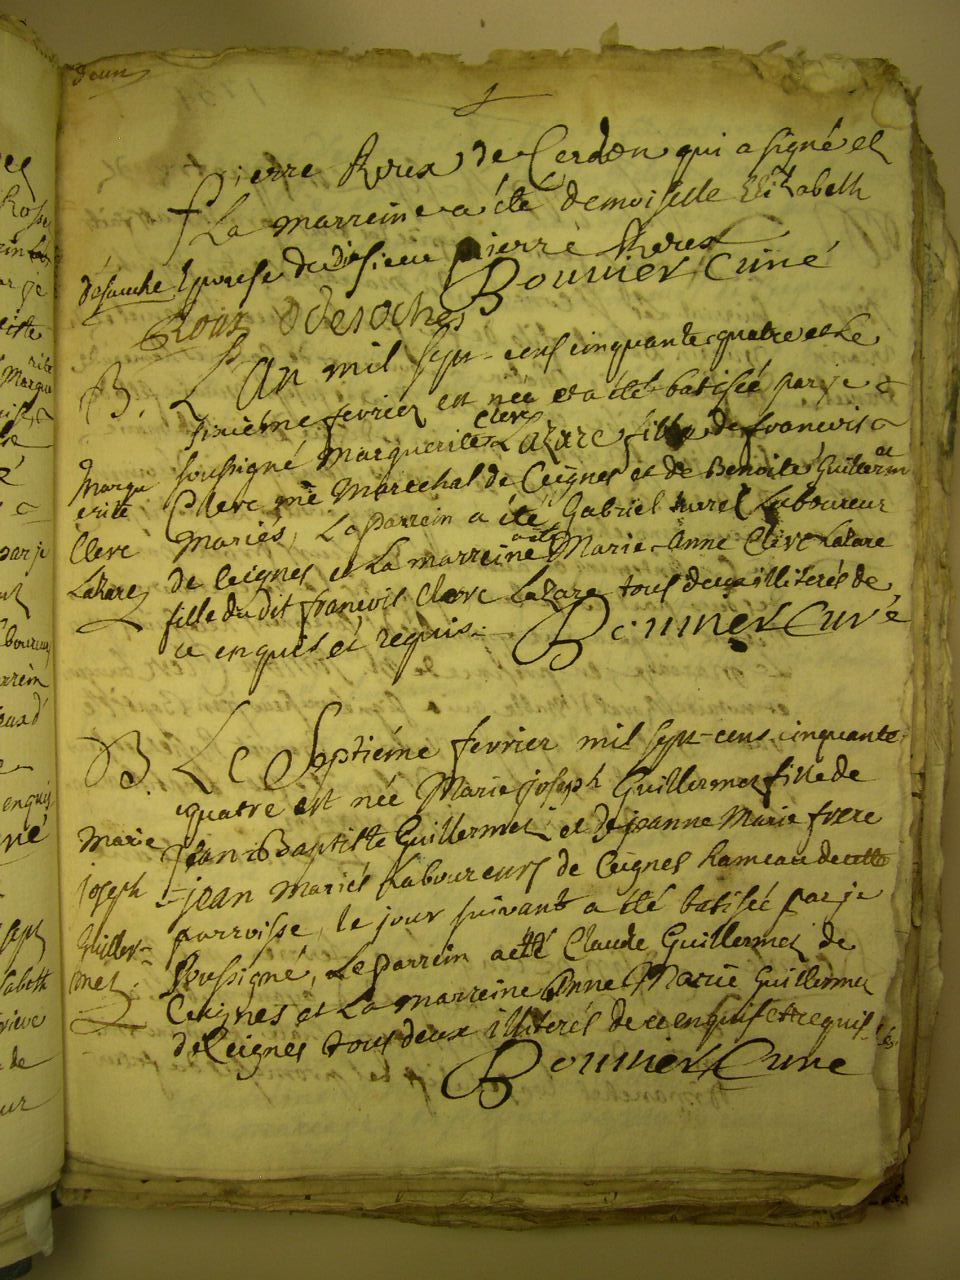 deux
Pierre Roux de Cerdon qui a signé et
La marreine a été demoiselle Elizabeth
épouse du dit sieur pierre Roux
Roux Bonnier Curé
B. L'An mil sept-cens cinquante-quatre et Le
sixiéme fevrier est née et a été batisée par je
soussigné Marguerite Clerc Lazare fille de francois
Clerc me Marechal de Ceignes et de Benoite Guillermet
Mariés, Le parrein a été Gabriel Laboureur
de Ceignes et La marreine a été Marie-Anne Clerc Lazare
fille du dit francois Clerc Lazare tous deux illiterés de
ce enquis et requis. Bonnier Curé
Margu
erite
Clerc
Lazare
B. Le Septiéme fevrier mil sept-cens cinquante
quatre est née Marie joseph Guillermet fille de
jean Baptiste Guillermet et de jeanne Marie frere
-jean Mariés Laboureurs de Ceignes hameau de cette
parroisse, le jour suivant a été batisée par je
soussigné, Le parrein a été Claude Guillermet de
Ceignes et La marreine Anne Marie Guillermet
de Ceignes tous deux illiterés de ce enquis et requis
Bonnier Curé
Marie
joseph
Guiller-
met.